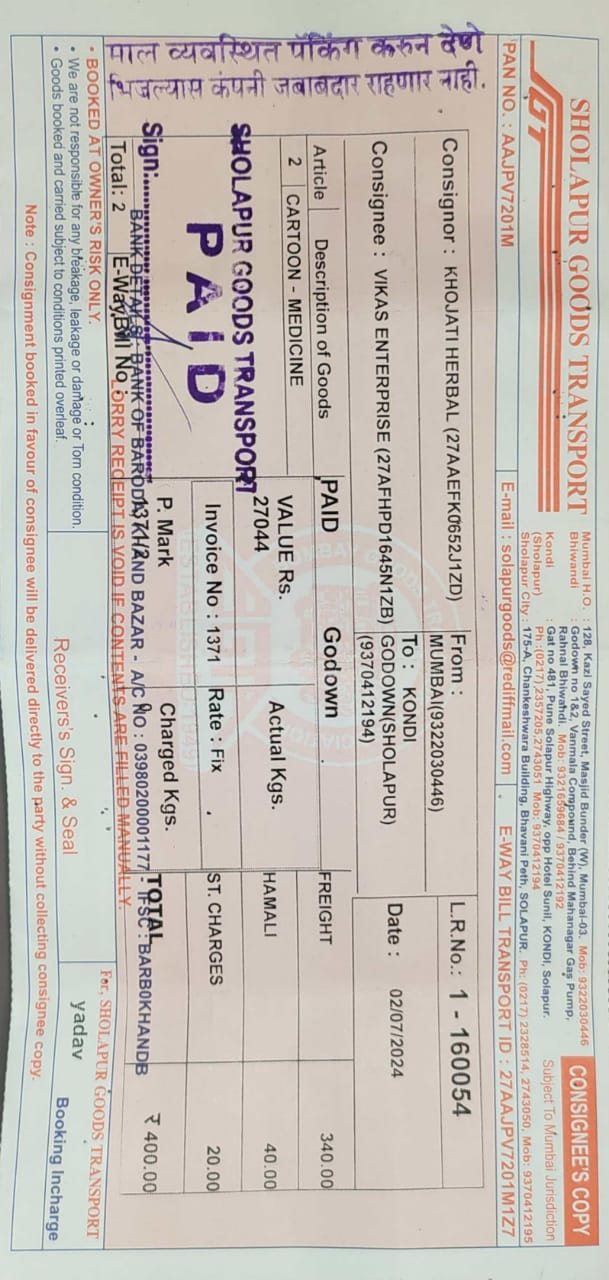 SHOLAPUR GOODS TRANSPORT
SGT
Mumbai H.O. : 128, Kazi Sayed Street, Masjid Bunder (W), Mumbai-03. Mob: 9322030446
Bhiwandi : Godown no 1&2, Vanmala Compound, Behind Mahanagar Gas Pump,
Rahnal Bhiwandi. Mob: 9321699684 / 9370412192
Kondi : Gat no 481, Pune Solapur Highway, opp Hotel Sunil, KONDI, Solapur.
(Sholapur) Ph :(0217) 2357205,2743051 Mob: 9370412194
Sholapur City : 175-A, Chankeshwara Building, Bhavani Peth, SOLAPUR. Ph: (0217) 2328514, 2743050, Mob: 9370412195
CONSIGNEE'S COPY
Subject To Mumbai Jurisdiction
PAN NO. : AAJPV7201M
E-mail : solapurgoods@rediffmail.com
E-WAY BILL TRANSPORT ID : 27AAJPV7201M1Z7
Consignor : KHOJATI HERBAL (27AAEFK0652J1ZD)
From :
MUMBAI(9322030446)
L.R.No.: 1 - 160054
Consignee : VIKAS ENTERPRISE (27AFHPD1645N1ZB)
To : KONDI
GODOWN(SHOLAPUR)
(9370412194)
Date : 02/07/2024
Article Description of Goods
PAID Godown
FREIGHT 340.00
2 CARTOON - MEDICINE
VALUE Rs.
27044
Actual Kgs.
HAMALI 40.00
Invoice No : 1371 Rate : Fix
ST. CHARGES 20.00
P. Mark
1371/2
Charged Kgs.
TOTAL ₹ 400.00
SHOLAPUR GOODS TRANSPORT
PAiD
Sign:
BANK DETAILS : BANK OF BARODA, KHAND BAZAR - A/C NO : 03980200001177 - IFSC : BARB0KHANDB
Total: 2 E-WayBill No :
LORRY RECEIPT IS VOID IF CONTENTS ARE FILLED MANUALLY.
माल व्यवस्थित पॅकिंग करुन देणे
भिजल्यास कंपनी जबाबदार राहणार नाही.
• BOOKED AT OWNER'S RISK ONLY.
• We are not responsible for any breakage, leakage or damage or Torn condition.
• Goods booked and carried subject to conditions printed overleaf.
Receivers's Sign. & Seal
For, SHOLAPUR GOODS TRANSPORT
yadav
Booking Incharge
Note : Consignment booked in favour of consignee will be delivered directly to the party without collecting consignee copy.